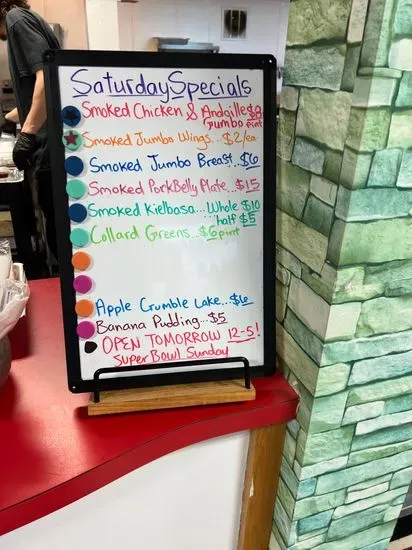 Saturday Specials
Smoked Chicken & Andoille $8
Gumbo pint
Smoked Jumbo Wings... $2/ea.
Smoked Jumbo Breast.. $6
Smoked Pork Belly Plate... $15
Smoked Kielbasa... Whole $10
half $5
Collard Greens... $6 pint
Apple Crumble Cake... $6
Banana Pudding... $5
OPEN TOMORROW 12-5!
Super Bowl Sunday